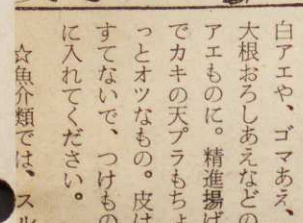 白アエや、ゴマあえ、
大根おろしあえなどの
アエものに。精進揚げ
でカキの天プラもちょ
っとオツなもの。皮は
すてないで、つけもの
に入れてください。
☆魚介類では、スル